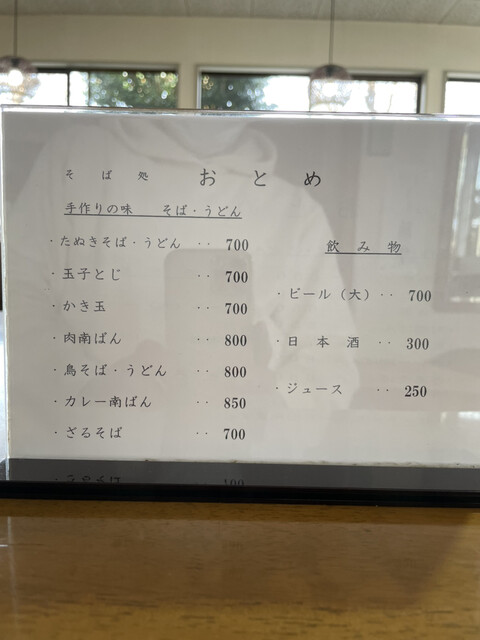 そば処 おとめ
手作りの味 そば・うどん
・たぬきそば・うどん ‥ 700
・玉子とじ ‥ 700
・かき玉 ‥ 700
・肉南ばん ‥ 800
・鳥そば・うどん ‥ 800
・カレー南ばん ‥ 850
・ざるそば ‥ 700
飲み物
・ビール（大）‥ 700
・日本酒 ‥ 300
・ジュース ‥ 250